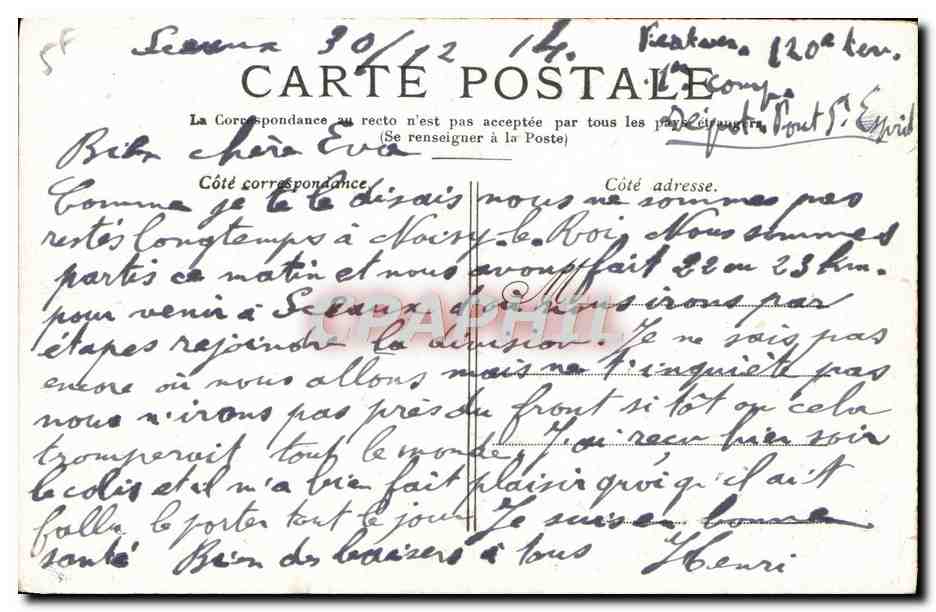 5F
Sceaux 30/12 14.
120e terr.
1re comp.
Dépot Pont St Esprit
CARTE POSTALE
La Correspondance au recto n'est pas acceptée par tous les pays étrangers
(Se renseigner à la Poste)
Bien chère Eva
Côté correspondance.
Côté adresse.
Comme je te le disais nous ne sommes pas
restés longtemps à Noisy-le-Roi. Nous sommes
partis ce matin et nous avons fait 22 ou 23 km.
M
pour venir à Sceaux d'où nous irons par
CPAPHIL
étapes rejoindre la division. Je ne sais pas
encore où nous allons mais ne t'inquiète pas
nous n'irons pas près du front si tôt ou cela
tromperait tout le monde. J'ai reçu hier soir
le colis et il m'a bien fait plaisir quoiqu'il ait
fallu le porter tout le jour Je suis en bonne
santé Bien des baisers à tous Henri